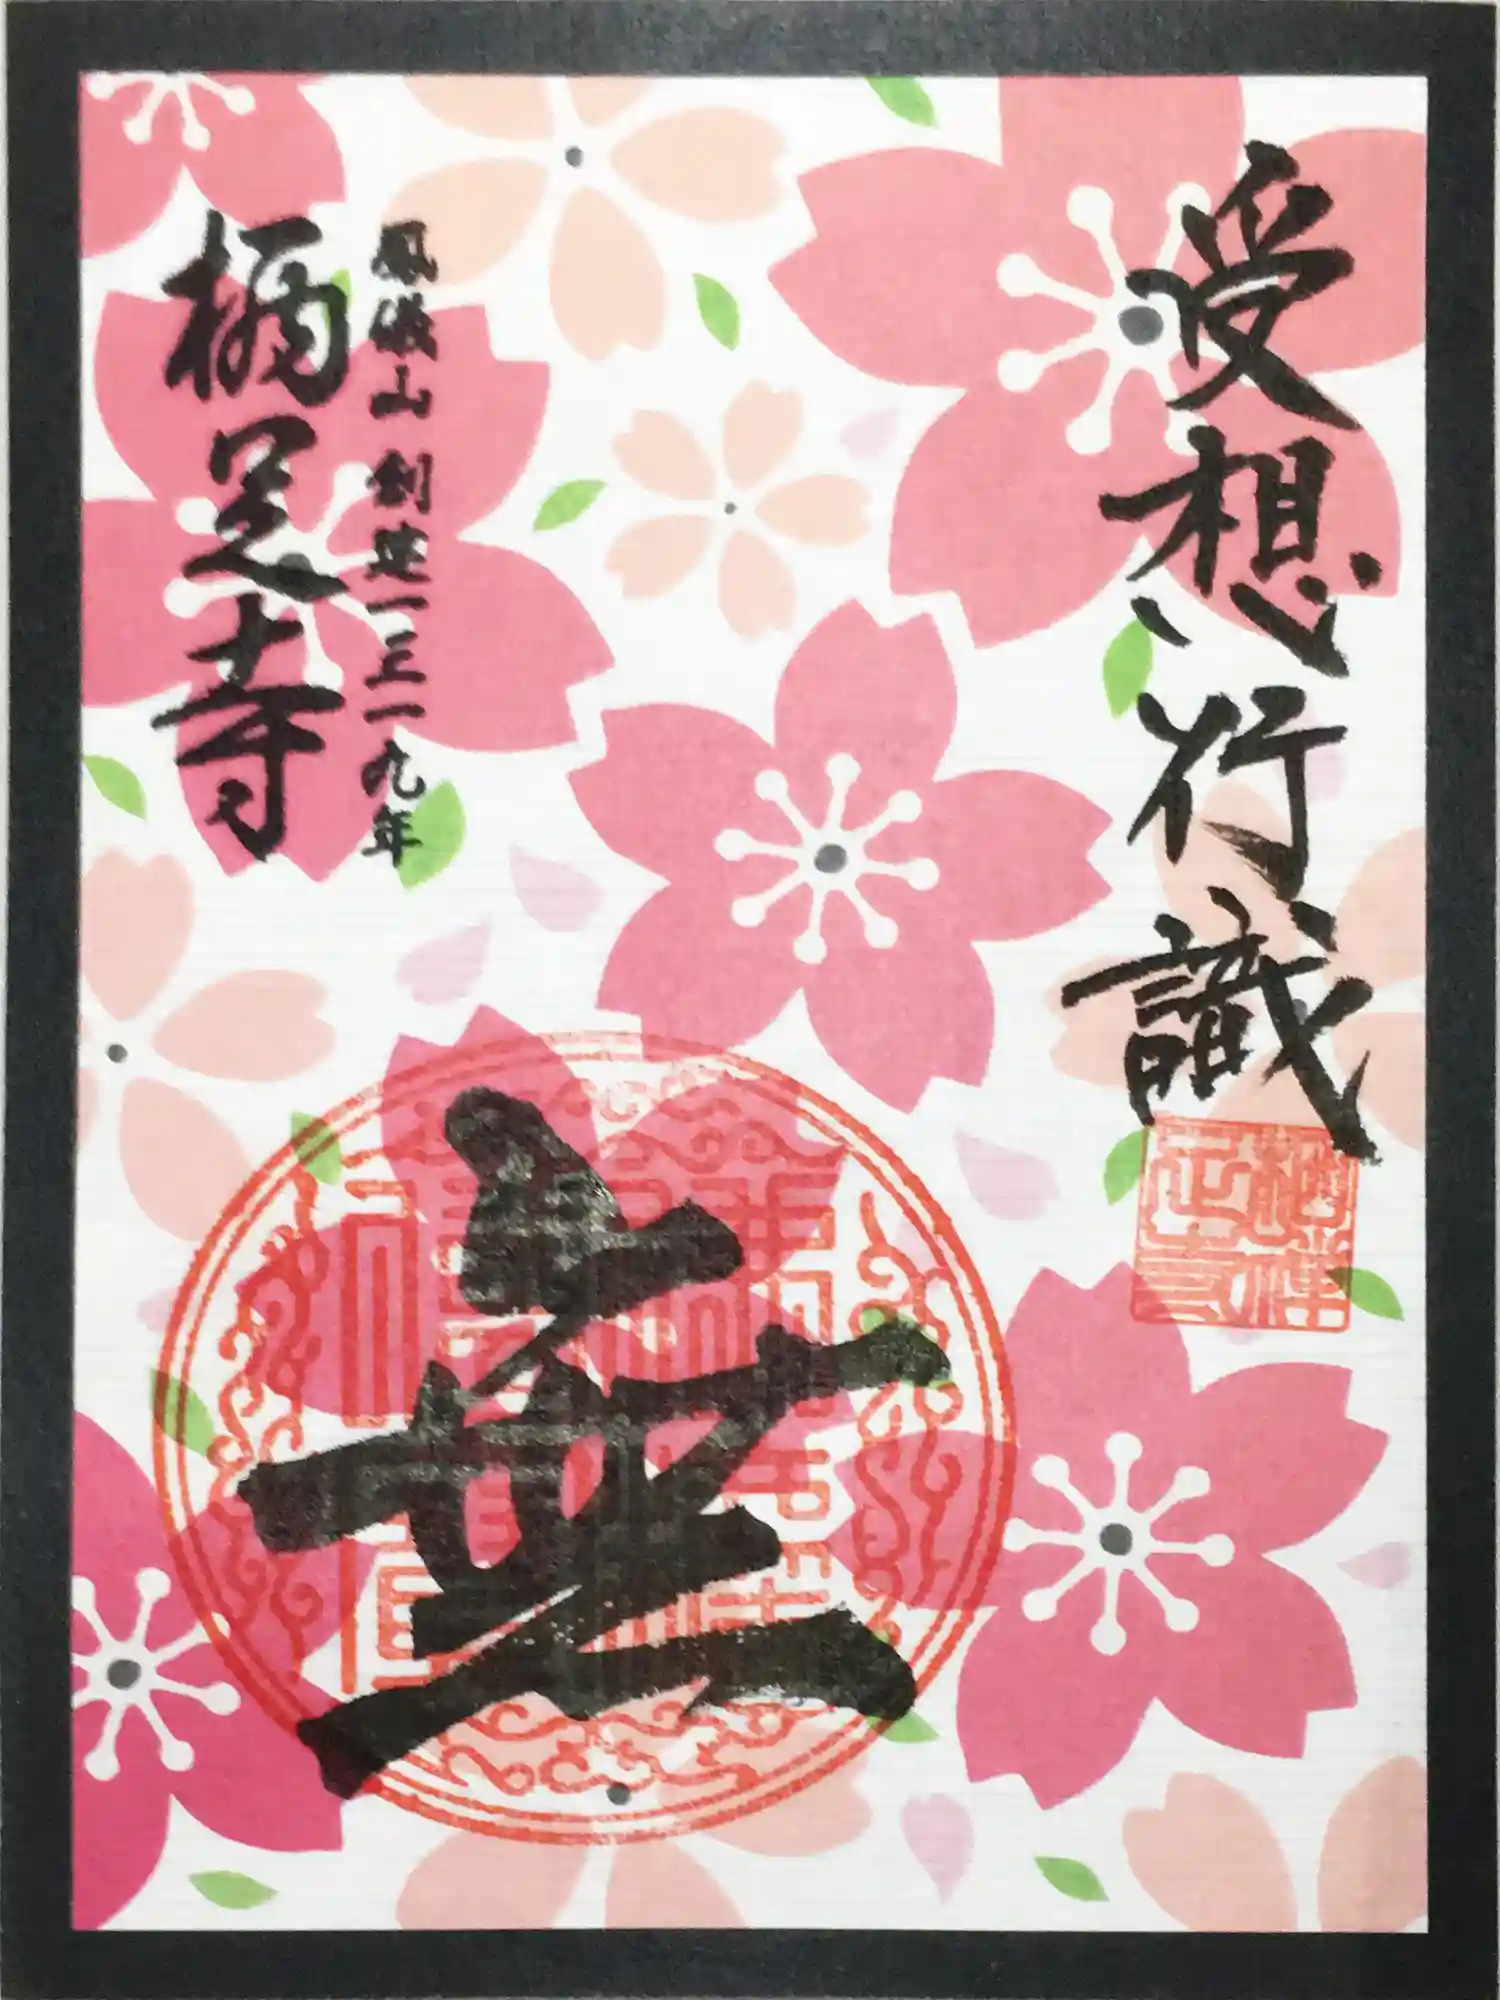 受想行識
無
鳳儀山 創建一三一九年
栖足寺